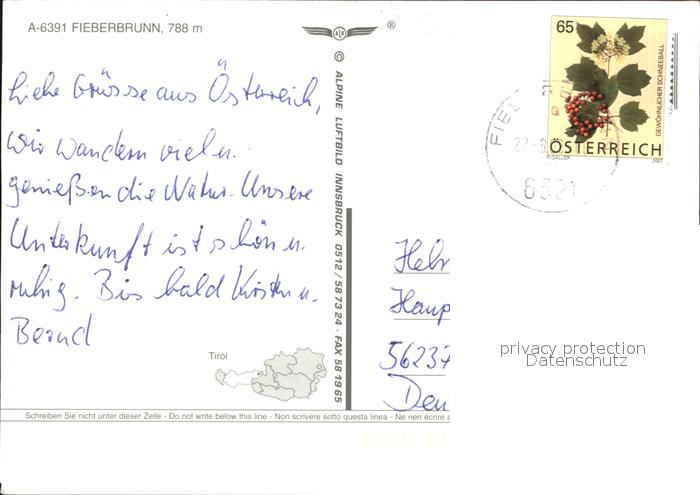 A-6391 FIEBERBRUNN, 788 m
Liebe Grüsse aus Österreich,
wir wandern viel u.
genießen die Natur. Unsere
Unterkunft ist schön u.
ruhig. Bis bald Kirsten u.
Bernd
Tirol
® 
© ALPINE LUFTBILD INNSBRUCK 0512/58 73 24 · FAX 58 19 65
65
GEWÖHNLICHER SCHNEEBALL
ÖSTERREICH
2007
FIEB
6391
Haup
56237
privacy protection
Datenschutz
Schreiben Sie nicht unter dieser Zeile - Do not write below this line - Non scrivere sotto questa linea - Ne rien écrire a